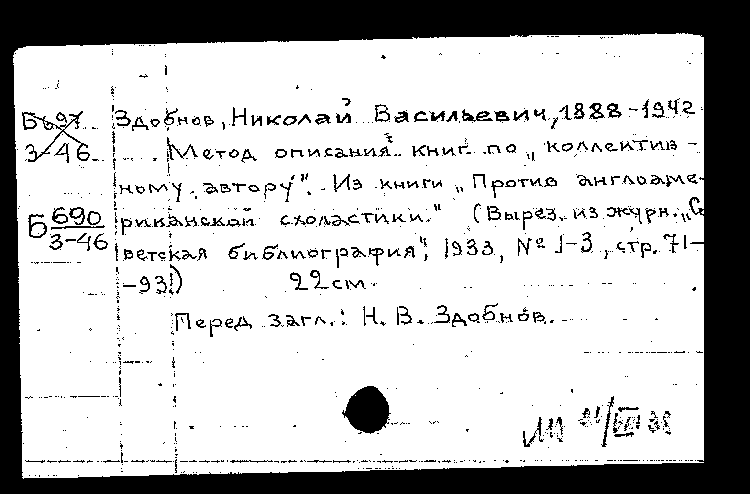 Б697 Здобнов, Николай Васильевич, 1888-1942
3-46 Метод описания книг по „коллектив-
ному автору“. Из книги „Против англоаме-
Б 690/3-46 риканской схоластики.“ (Вырез. из журн. „Со
ветская библиография“, 1933, № 1-3, стр. 71-
-93.) 22 см.
Перед загл.: Н. В. Здобнов.